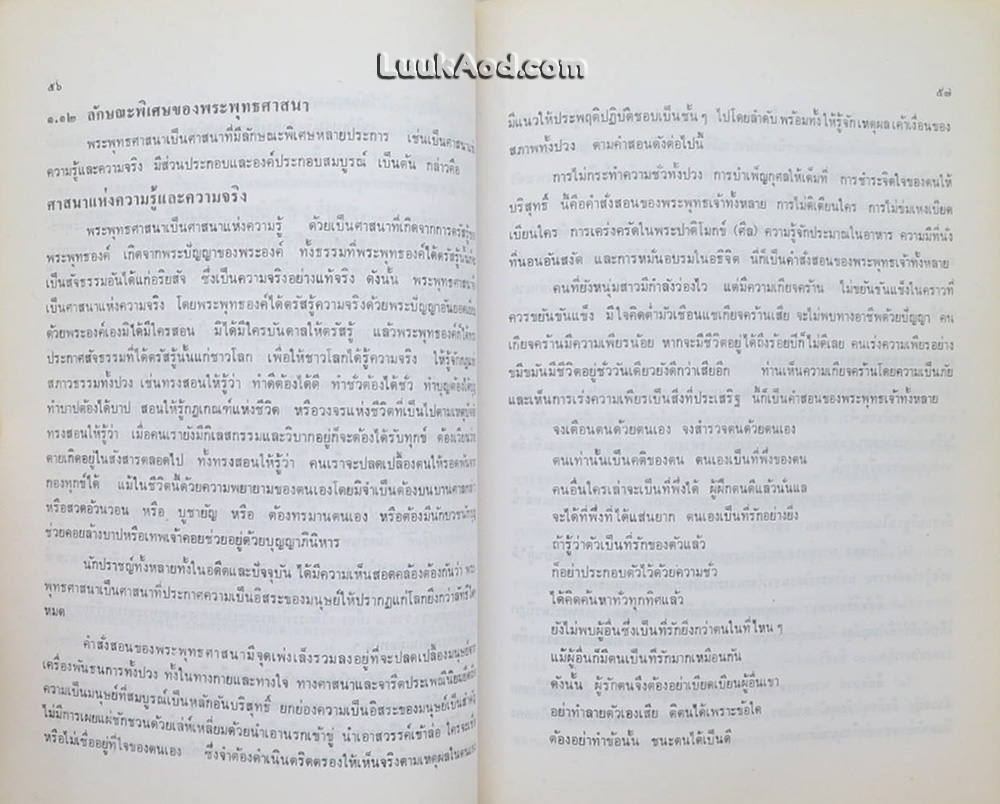 LuukAod.com
๕๖
๑.๑๒ ลักษณะพิเศษของพระพุทธศาสนา
พระพุทธศาสนาเป็นศาสนาที่มีลักษณะพิเศษหลายประการ เช่นเป็นศาสนาแห่ง
ความรู้และความจริง มีส่วนประกอบและองค์ประกอบสมบูรณ์ เป็นต้น กล่าวคือ
ศาสนาแห่งความรู้และความจริง
พระพุทธศาสนาเป็นศาสนาแห่งความรู้ ด้วยเป็นศาสนาที่เกิดจากการตรัสรู้ของ
พระพุทธองค์ เกิดจากพระปัญญาของพระองค์ ทั้งธรรมที่พระพุทธองค์ได้ตรัสรู้นั้น
เป็นสัจธรรมอันได้แก่อริยสัจ ซึ่งเป็นความจริงอย่างแท้จริง ดังนั้น พระพุทธศาสนา
เป็นศาสนาแห่งความจริง โดยพระพุทธองค์ได้ตรัสรู้ความจริงด้วยพระปัญญาอันยอดเยี่ยม
ด้วยพระองค์เองมิได้มีใครสอน มิได้มีใครบันดาลให้ตรัสรู้ แล้วพระพุทธองค์ก็ได้
ประกาศสัจธรรมที่ได้ตรัสรู้นั้นแก่ชาวโลก เพื่อให้ชาวโลกได้รู้ความจริง ให้รู้จัก
สภาวธรรมทั้งปวง เช่นทรงสอนให้รู้ว่า ทำดีต้องได้ดี ทำชั่วต้องได้ชั่ว ทำบุญต้องได้บุญ
ทำบาปต้องได้บาป สอนให้รู้กฎเกณฑ์แห่งชีวิต หรือวงจรแห่งชีวิตที่เป็นไปตามเหตุปัจจัย
ทรงสอนให้รู้ว่า เมื่อคนเรายังมีกิเลสกรรมและวิบากอยู่ก็จะต้องได้รับทุกข์ ต้องเวียนว่าย
ตายเกิดอยู่ในสังสารตลอดไป ทั้งทรงสอนให้รู้ว่า คนเราจะปลดเปลื้องตนให้รอดพ้นจาก
กองทุกข์ได้ แม้ในชีวิตนี้ด้วยความพยายามของตนเองโดยมิจำเป็นต้องบนบานศาลกล่าว
หรือสวดอ้อนวอน หรือ บูชายัญ หรือ ต้องทรมานตนเอง หรือต้องมีนักบวชนักบุญ
ช่วยคอยล้างบาปหรือเทพเจ้าคอยช่วยอยู่ด้วยบุญญาภินิหาร
นักปราชญ์ทั้งหลายทั้งในอดีตและปัจจุบัน ได้มีความเห็นสอดคล้องต้องกันว่า พระ
พุทธศาสนาเป็นศาสนาที่ประกาศความเป็นอิสระของมนุษย์ให้ปรากฏแก่โลกยิ่งกว่าลัทธิใด
หมด
คำสั่งสอนของพระพุทธศาสนามีจุดเพ่งเล็งรวมลงอยู่ที่จะปลดเปลื้องมนุษย์จาก
เครื่องพันธนการทั้งปวง ทั้งในทางกายและทางใจ ทางศาสนาและจารีตประเพณีนิยม
ความเป็นมนุษย์ที่สมบูรณ์เป็นหลักอันบริสุทธิ์ ยกย่องความเป็นอิสระของมนุษย์เป็นสำคัญ
ไม่มีการเผยแผ่ชักชวนด้วยเล่ห์เหลี่ยมด้วยนำเอานรกเข้าขู่ นำเอาสวรรค์เข้าล่อ ใครจะเชื่อ
หรือไม่เชื่ออยู่ที่ใจของตนเอง ซึ่งจำต้องดำเนินตริตรองให้เห็นจริงตามเหตุผลในตนเอง
๕๗
มีแนวให้ประพฤติปฏิบัติชอบเป็นชั้น ๆ ไปโดยลำดับ พร้อมทั้งให้รู้จักเหตุผลเค้าเงื่อนของ
สภาพทั้งปวง ตามคำสอนดังต่อไปนี้
การไม่กระทำความชั่วทั้งปวง การบำเพ็ญกุศลให้เต็มที่ การชำระจิตใจของตนให้
บริสุทธิ์ นี้คือคำสั่งสอนของพระพุทธเจ้าทั้งหลาย การไม่ติเตียนใคร การไม่ข่มเหงเบียด
เบียนใคร การเคร่งครัดในพระปาติโมกข์ (ศีล) ความรู้จักประมาณในอาหาร ความมีที่นั่ง
ที่นอนอันสงัด และการหมั่นอบรมในอธิจิต นี้ก็เป็นคำสั่งสอนของพระพุทธเจ้าทั้งหลาย
คนที่ยังหนุ่มสาวมีกำลังว่องไว แต่มีความเกียจคร้าน ไม่ขยันขันแข็งในคราวที่
ควรขยันขันแข็ง มีใจคิดต่ำมัวเชือนแชเกียจคร้านเสีย จะไม่พบทางอาชีพด้วยปัญญา คน
เกียจคร้านมีความเพียรน้อย หากจะมีชีวิตอยู่ได้ถึงร้อยปีก็ไม่ดีเลย คนเร่งความเพียรอย่าง
ขมีขมันมีชีวิตอยู่ชั่ววันเดียวยังดีกว่าเสียอีก ท่านเห็นความเกียจคร้านโดยความเป็นภัย
และเห็นการเร่งความเพียรเป็นสิ่งที่ประเสริฐ นี้ก็เป็นคำสอนของพระพุทธเจ้าทั้งหลาย
จงเตือนตนด้วยตนเอง จงสำรวจตนด้วยตนเอง
ตนเท่านั้นเป็นคติของตน ตนเองเป็นที่พึ่งของตน
คนอื่นใครเล่าจะเป็นที่พึ่งได้ ผู้ฝึกตนดีแล้วนั่นแล
จะได้ที่พึ่งที่ได้แสนยาก ตนเองเป็นที่รักอย่างยิ่ง
ถ้ารู้ว่าตัวเป็นที่รักของตัวแล้ว
ก็อย่าประกอบตัวไว้ด้วยความชั่ว
ได้คิดค้นหาทั่วทุกทิศแล้ว
ยังไม่พบผู้อื่นซึ่งเป็นที่รักยิ่งกว่าตนในที่ไหน ๆ
แม้ผู้อื่นก็มีตนเป็นที่รักมากเหมือนกัน
ดังนั้น ผู้รักตนจึงต้องอย่าเบียดเบียนผู้อื่นเขา
อย่าทำลายตัวเองเสีย ติตนได้เพราะข้อใด
ต้องอย่าทำข้อนั้น ชนะตนได้เป็นดี